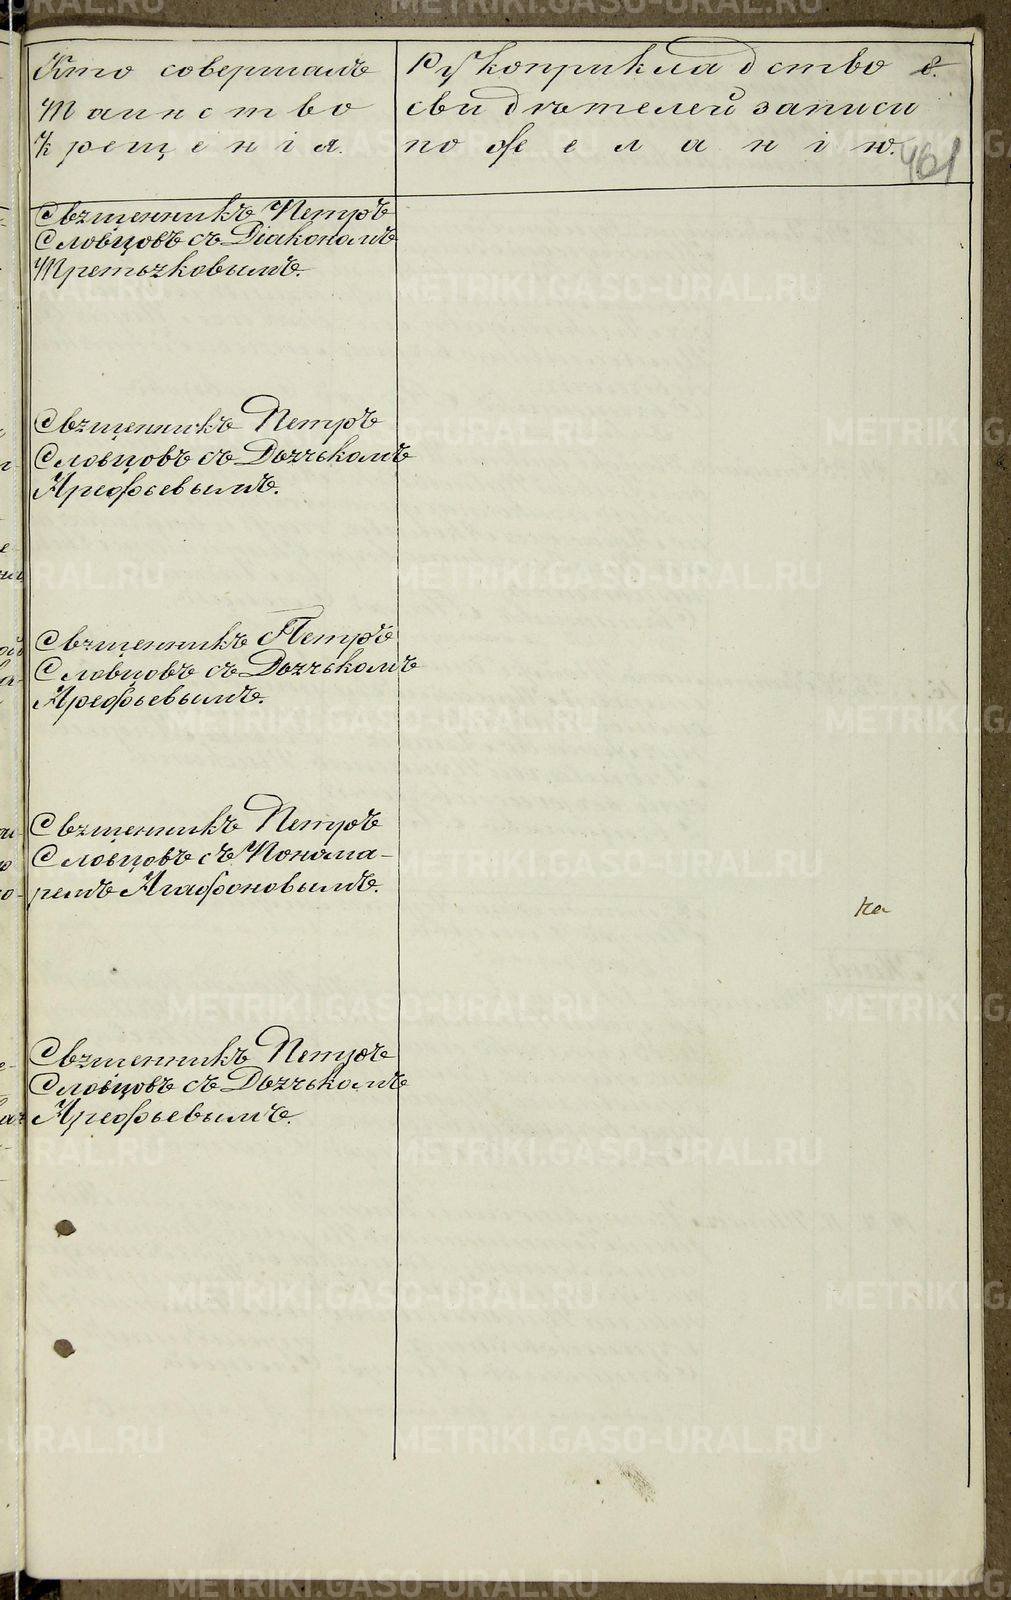 Кто совершалъ
Таинство
Крещенія.
Рукоприкладство
свидѣтелей записи
по желанію.
461
Священникъ Петръ
Словцовъ съ Діакономъ
Третьяковымъ.
Священникъ Петръ
Словцовъ съ Дьячькомъ
Арефьевымъ.
Священникъ Петръ
Словцовъ съ Дьячькомъ
Арефьевымъ.
Священникъ Петръ
Словцовъ съ Понома-
ремъ Агафоновымъ.
Священникъ Петръ
Словцовъ съ Дьячькомъ
Арефьевымъ.
METRIKI.GASO-URAL.RU